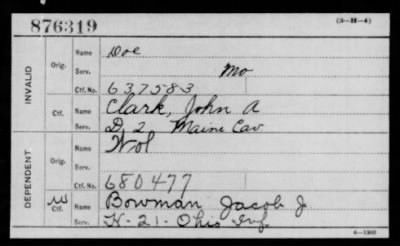 876319
(3-H-4)
INVALID
Orig.
Name Doe
Serv. Mo
Ctf. No. 637583
Ctf.
Name Clark, John A
Serv. D, 2 Maine Cav
DEPENDENT
Orig.
Name Wol
Serv.
Ctf. No. 680477
W Ctf.
Name Bowman, Jacob J
Serv. K-21-Ohio Inf.